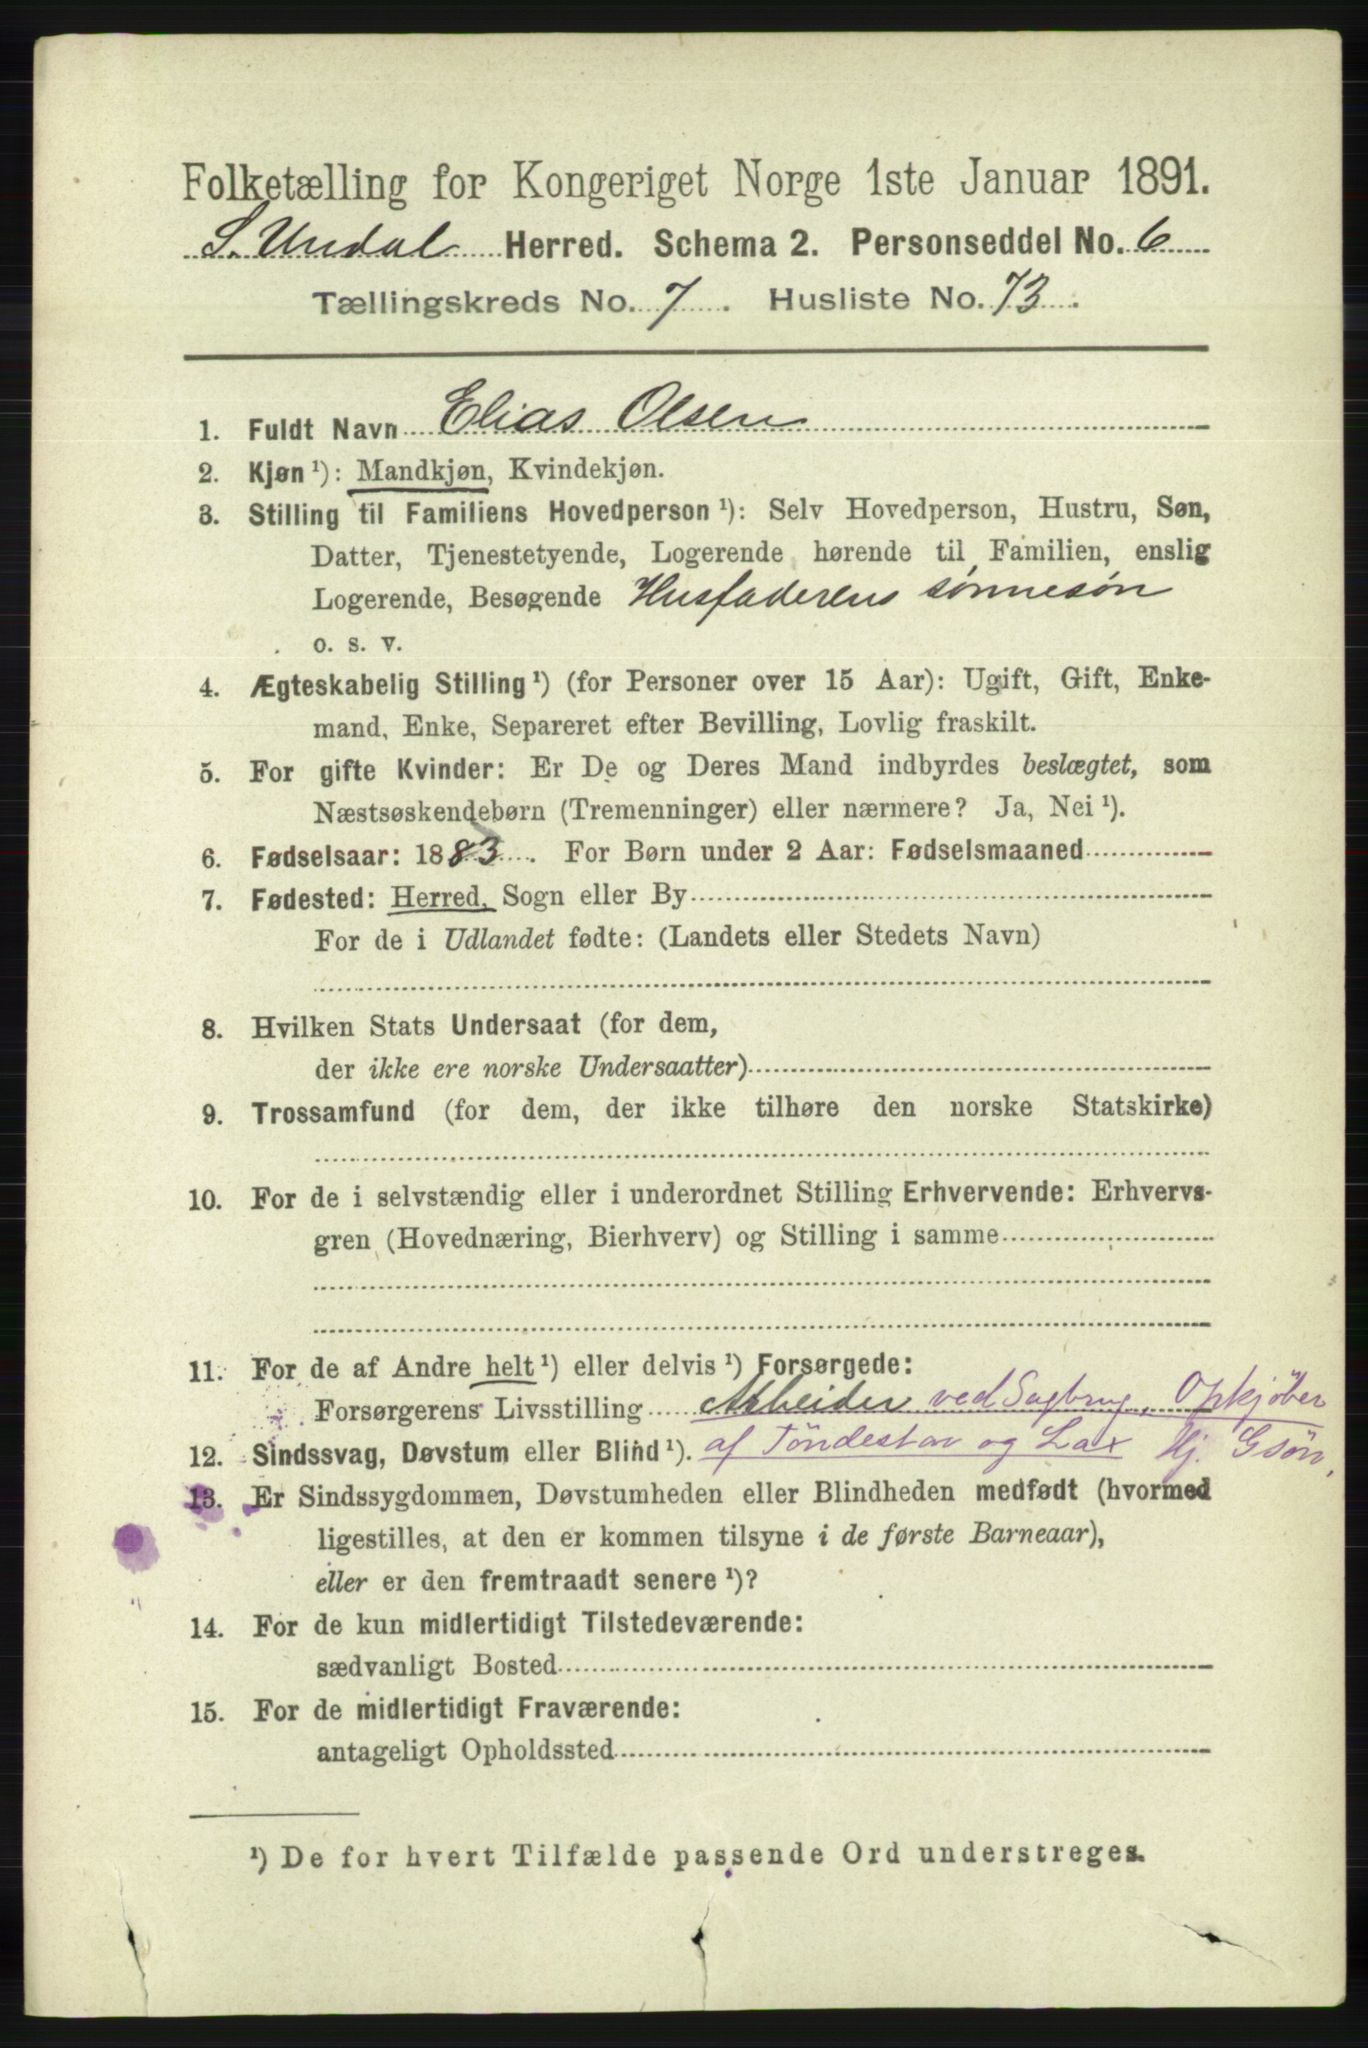 Folketælling for Kongeriget Norge 1ste Januar 1891.
S. Undal Herred. Schema 2. Personseddel No. 6
Tællingskreds No. 7. Husliste No. 73.
1. Fuldt Navn Elias Olsen
2. Kjøn ¹): Mandkjøn, Kvindekjøn.
3. Stilling til Familiens Hovedperson ¹): Selv Hovedperson, Hustru, Søn,
Datter, Tjenestetyende, Logerende hørende til Familien, enslig
Logerende, Besøgende Husfaderens sønnesøn
o. s. v.
4. Ægteskabelig Stilling ¹) (for Personer over 15 Aar): Ugift, Gift, Enke-
mand, Enke, Separeret efter Bevilling, Lovlig fraskilt.
5. For gifte Kvinder: Er De og Deres Mand indbyrdes beslægtet, som
Næstsøskendebørn (Tremenninger) eller nærmere? Ja, Nei ¹).
6. Fødselsaar: 1883. For Børn under 2 Aar: Fødselsmaaned
7. Fødested: Herred, Sogn eller By
For de i Udlandet fødte: (Landets eller Stedets Navn)
8. Hvilken Stats Undersaat (for dem,
der ikke ere norske Undersaatter)
9. Trossamfund (for dem, der ikke tilhøre den norske Statskirke)
10. For de i selvstændig eller i underordnet Stilling Erhvervende: Erhvervs-
gren (Hovednæring, Bierhverv) og Stilling i samme
11. For de af Andre helt ¹) eller delvis ¹) Forsørgede:
Forsørgerens Livsstilling Arbeider ved Sagbrug, Opkjöber
12. Sindssvag, Døvstum eller Blind ¹). af Töndestav og Lax Hj. Gsön,
13. Er Sindssygdommen, Døvstumheden eller Blindheden medfødt (hvormed
ligestilles, at den er kommen tilsyne i de første Barneaar),
eller er den fremtraadt senere ¹)?
14. For de kun midlertidigt Tilstedeværende:
sædvanligt Bosted
15. For de midlertidigt Fraværende:
antageligt Opholdssted
¹) De for hvert Tilfælde passende Ord understreges.